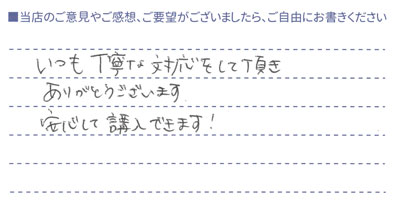 ■当店のご意見やご感想、ご要望がございましたら、ご自由にお書きください
いつも丁寧な対応をして頂き
ありがとうございます
安心して講入できます!